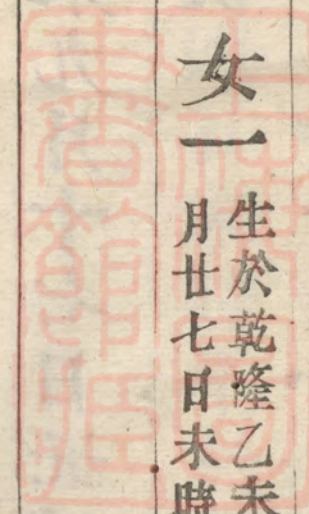 女一
生於乾隆乙未
月廿七日未時